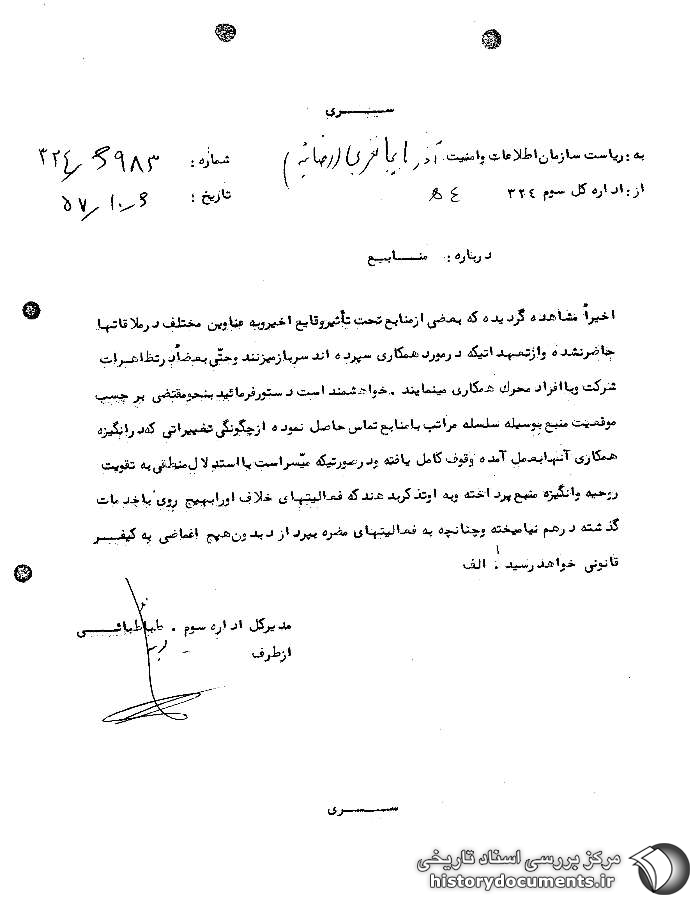 ســـری
به: ریاست سازمان اطلاعات وامنیت. آذربایجانغربی (رضائیه) شماره: ۳۲۴/۶۹۸۳
از: اداره کل سوم ۳۲۴ تاریخ: ۵۷/۱۰/۶
درباره: منـــابع
اخیراً مشاهده گردیده که بعضی ازمنابع تحت تأثیروقایع اخیروبه عناوین مختلف درملاقاتها
حاضرنشده وازتعهداتیکه درمورد همکاری سپرده اند سربازمیزنند وحتّی بعضاًدرتظاهرات
شرکت وباافراد محرک همکاری مینمایند .خواهشمند است دستورفرمائید بنحومقتضی برحسب
موقعیت منبع بوسیله سلسله مراتب بامنابع تماس حاصل نموده ازچگونگی تغییراتی که درانگیزه
همکاری آنهابعمل آمده وقوف کامل یافته ودرصورتیکه میّسراست بااستدلال منطقی به تقویت
روحیه وانگیزه منبع پرداخته وبه اوتذکربدهند که فعالیتهای خلاف اورابهیچ روی باخدمات
گذشته درهم نیامیخته وچنانچه به فعالیتهای مضره بپردازد بدون هیچ اغماضی به کیفـــر
قانونی خواهدرسید. الف
مدیرکل اداره سوم . طباطبائـــی
ازطرف
ســـری
مرکز بررسی اسناد تاریخی
historydocuments.ir